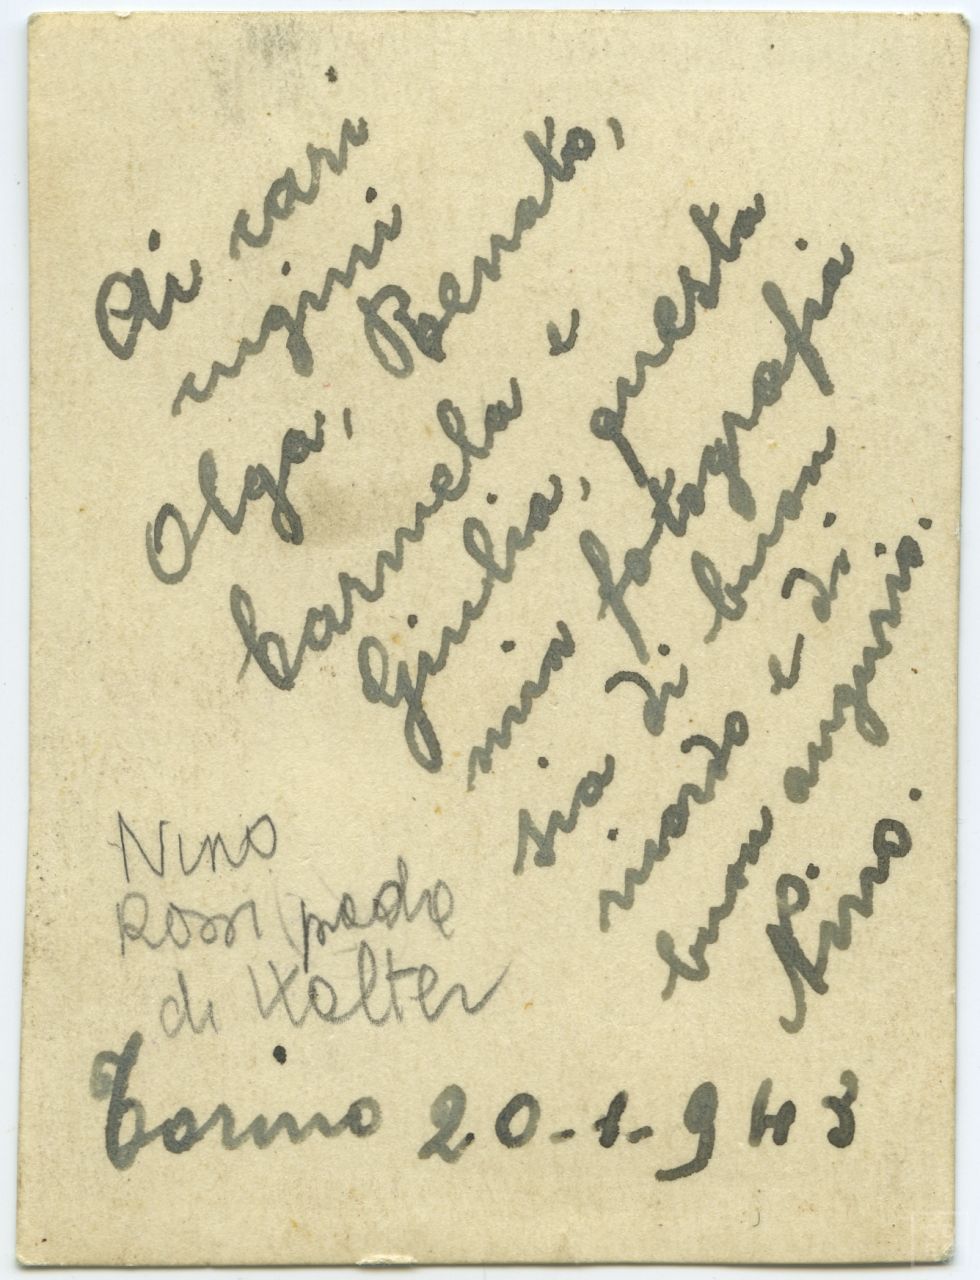 Ai cari
cugini
Olga, Renato,
Carmela e
Giulia, questa
mia fotografia
sia di buon
ricordo e di
buon augurio.
Nino.
Nino
Rossi (padre
di Walter
Torino 20-1-943